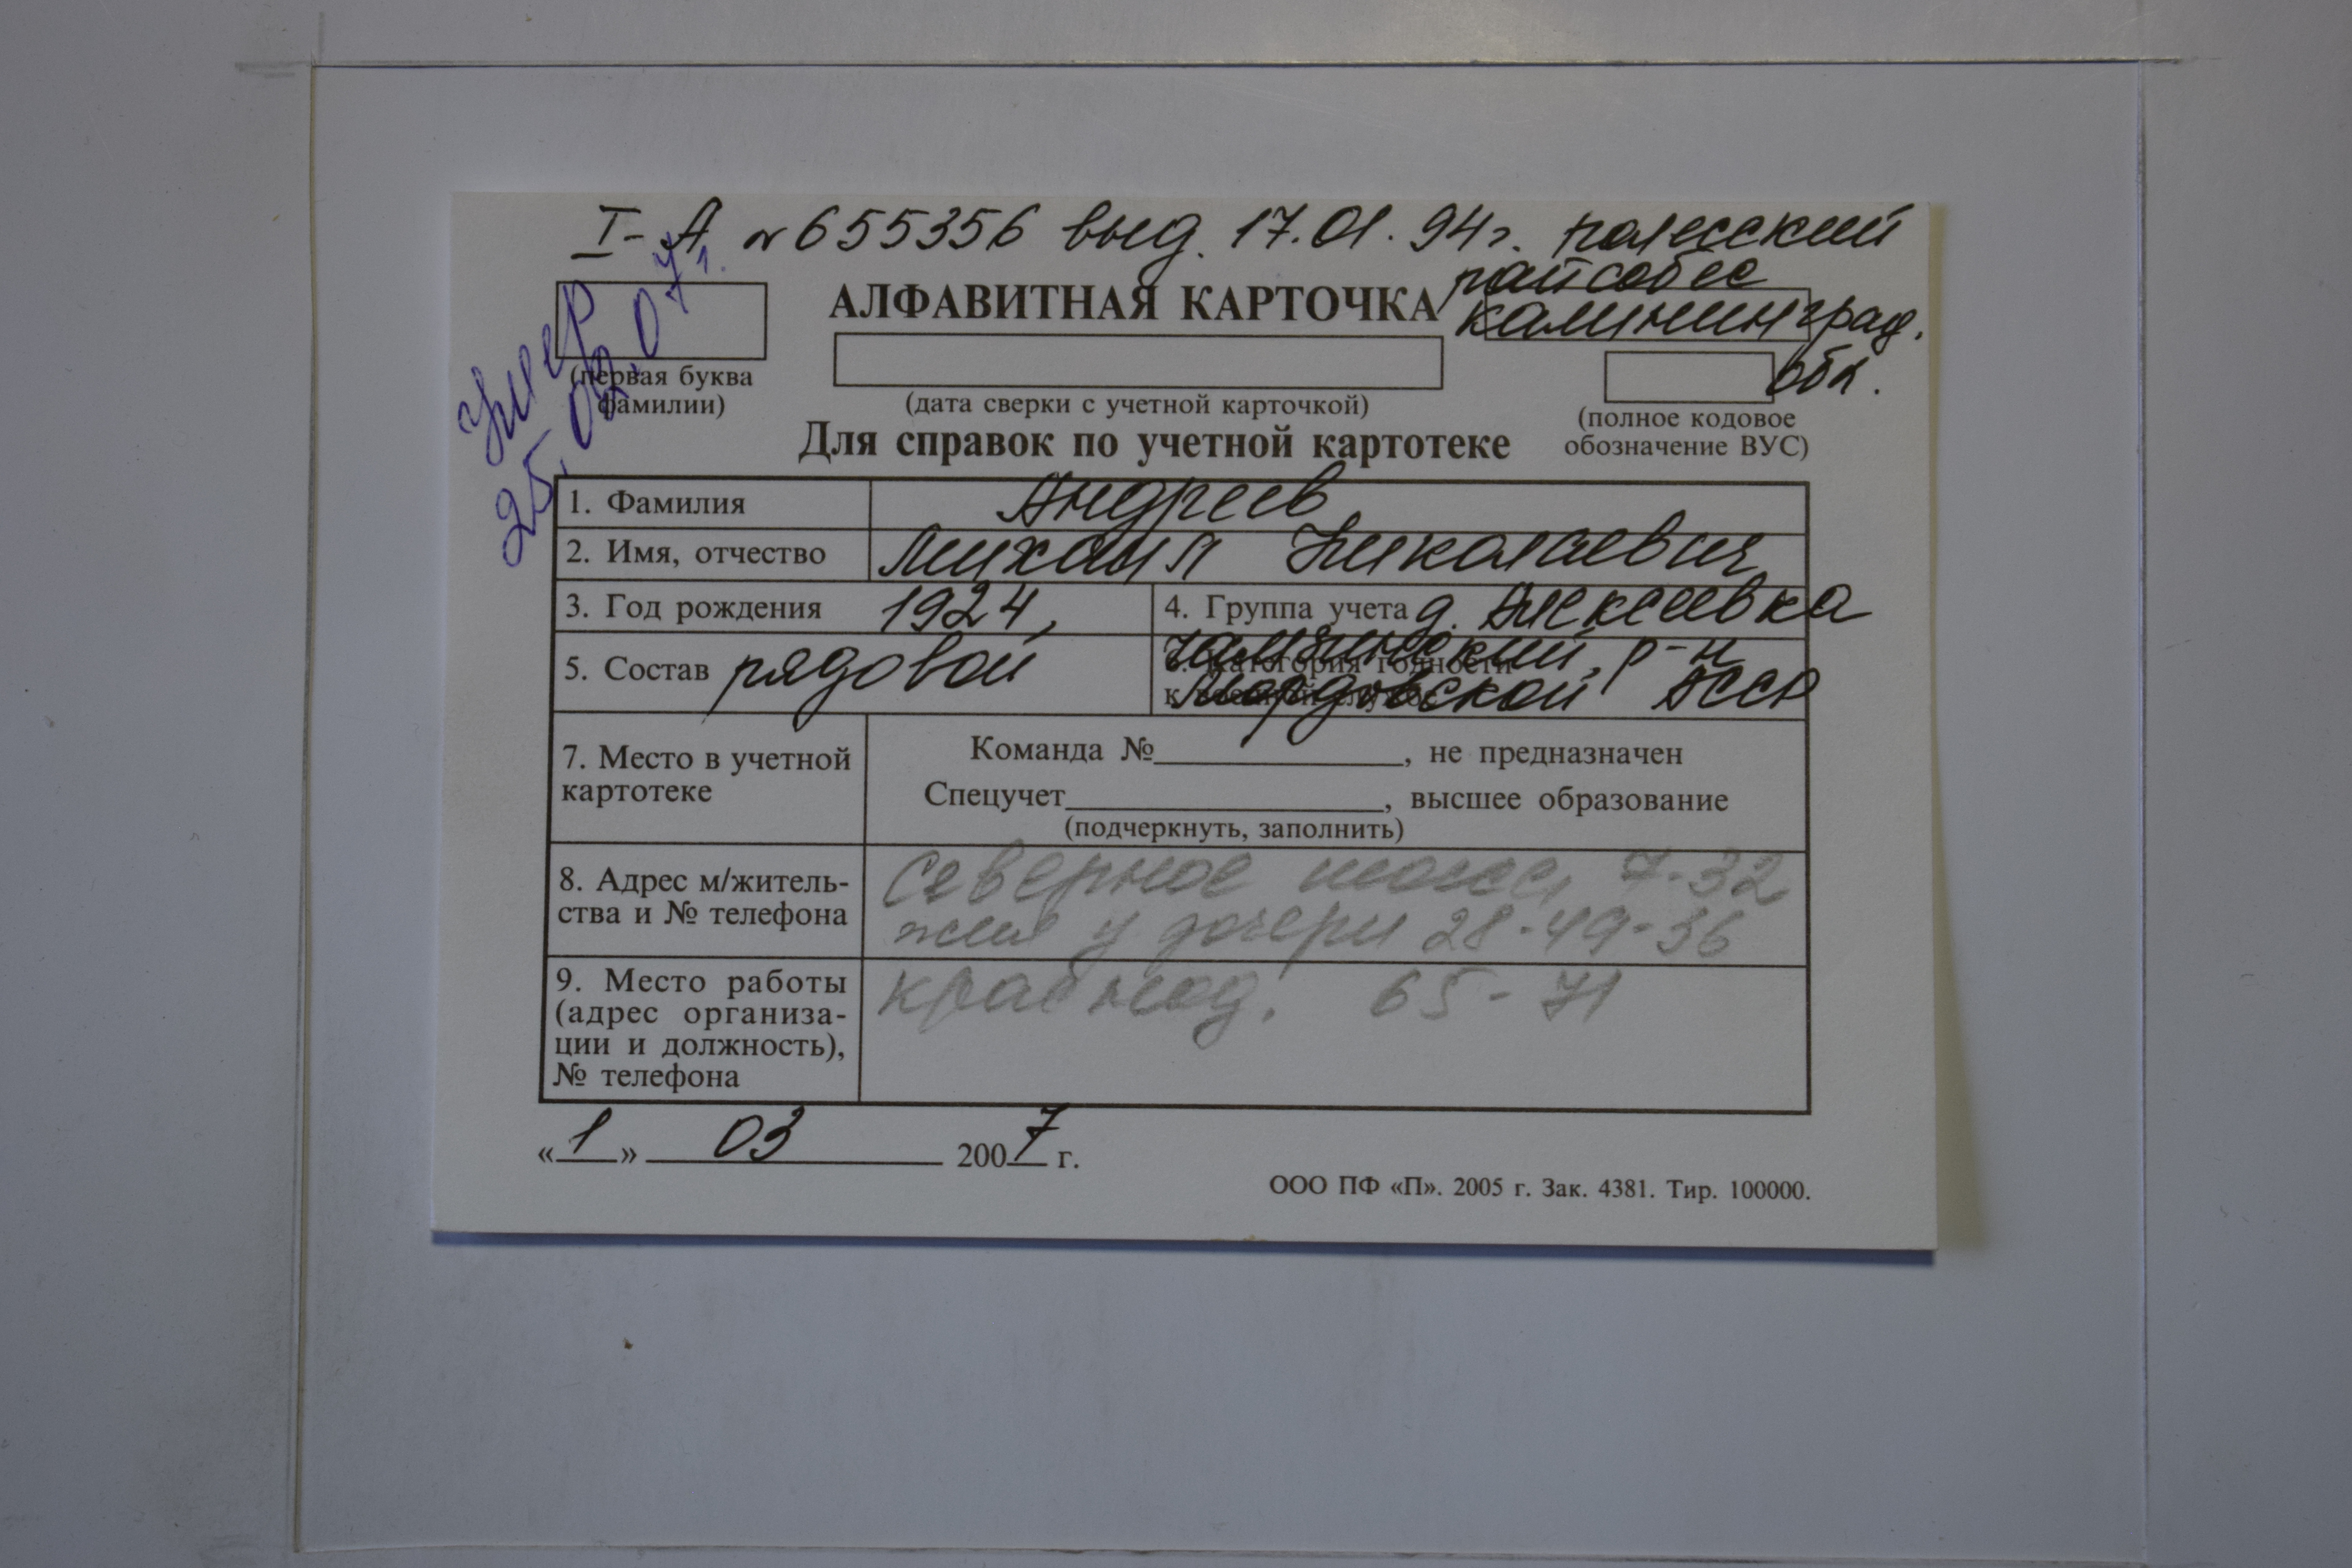 I-А № 655356 выд. 17.01.94г. полесский
райсобес
калининград.
обл.
умер
25.02.07г.
АЛФАВИТНАЯ КАРТОЧКА
(первая буква
фамилии)
(дата сверки с учетной карточкой)
(полное кодовое
обозначение ВУС)
Для справок по учетной картотеке
1. Фамилия Андреев
2. Имя, отчество Михаил Николаевич
3. Год рождения 1924,
4. Группа учета д. Алексеевка
5. Состав рядовой
6. Категория годности
к военной службе
р-н
Мордовской АССР
7. Место в учетной
картотеке
Команда №, не предназначен
Спецучет, высшее образование
(подчеркнуть, заполнить)
8. Адрес м/житель-
ства и № телефона
Северное шоссе, 7-32
жил у дочери 28-49-36
9. Место работы
(адрес организа-
ции и должность),
№ телефона
65-71
«1» 03 2007 г.
ООО ПФ «П». 2005 г. Зак. 4381. Тир. 100000.